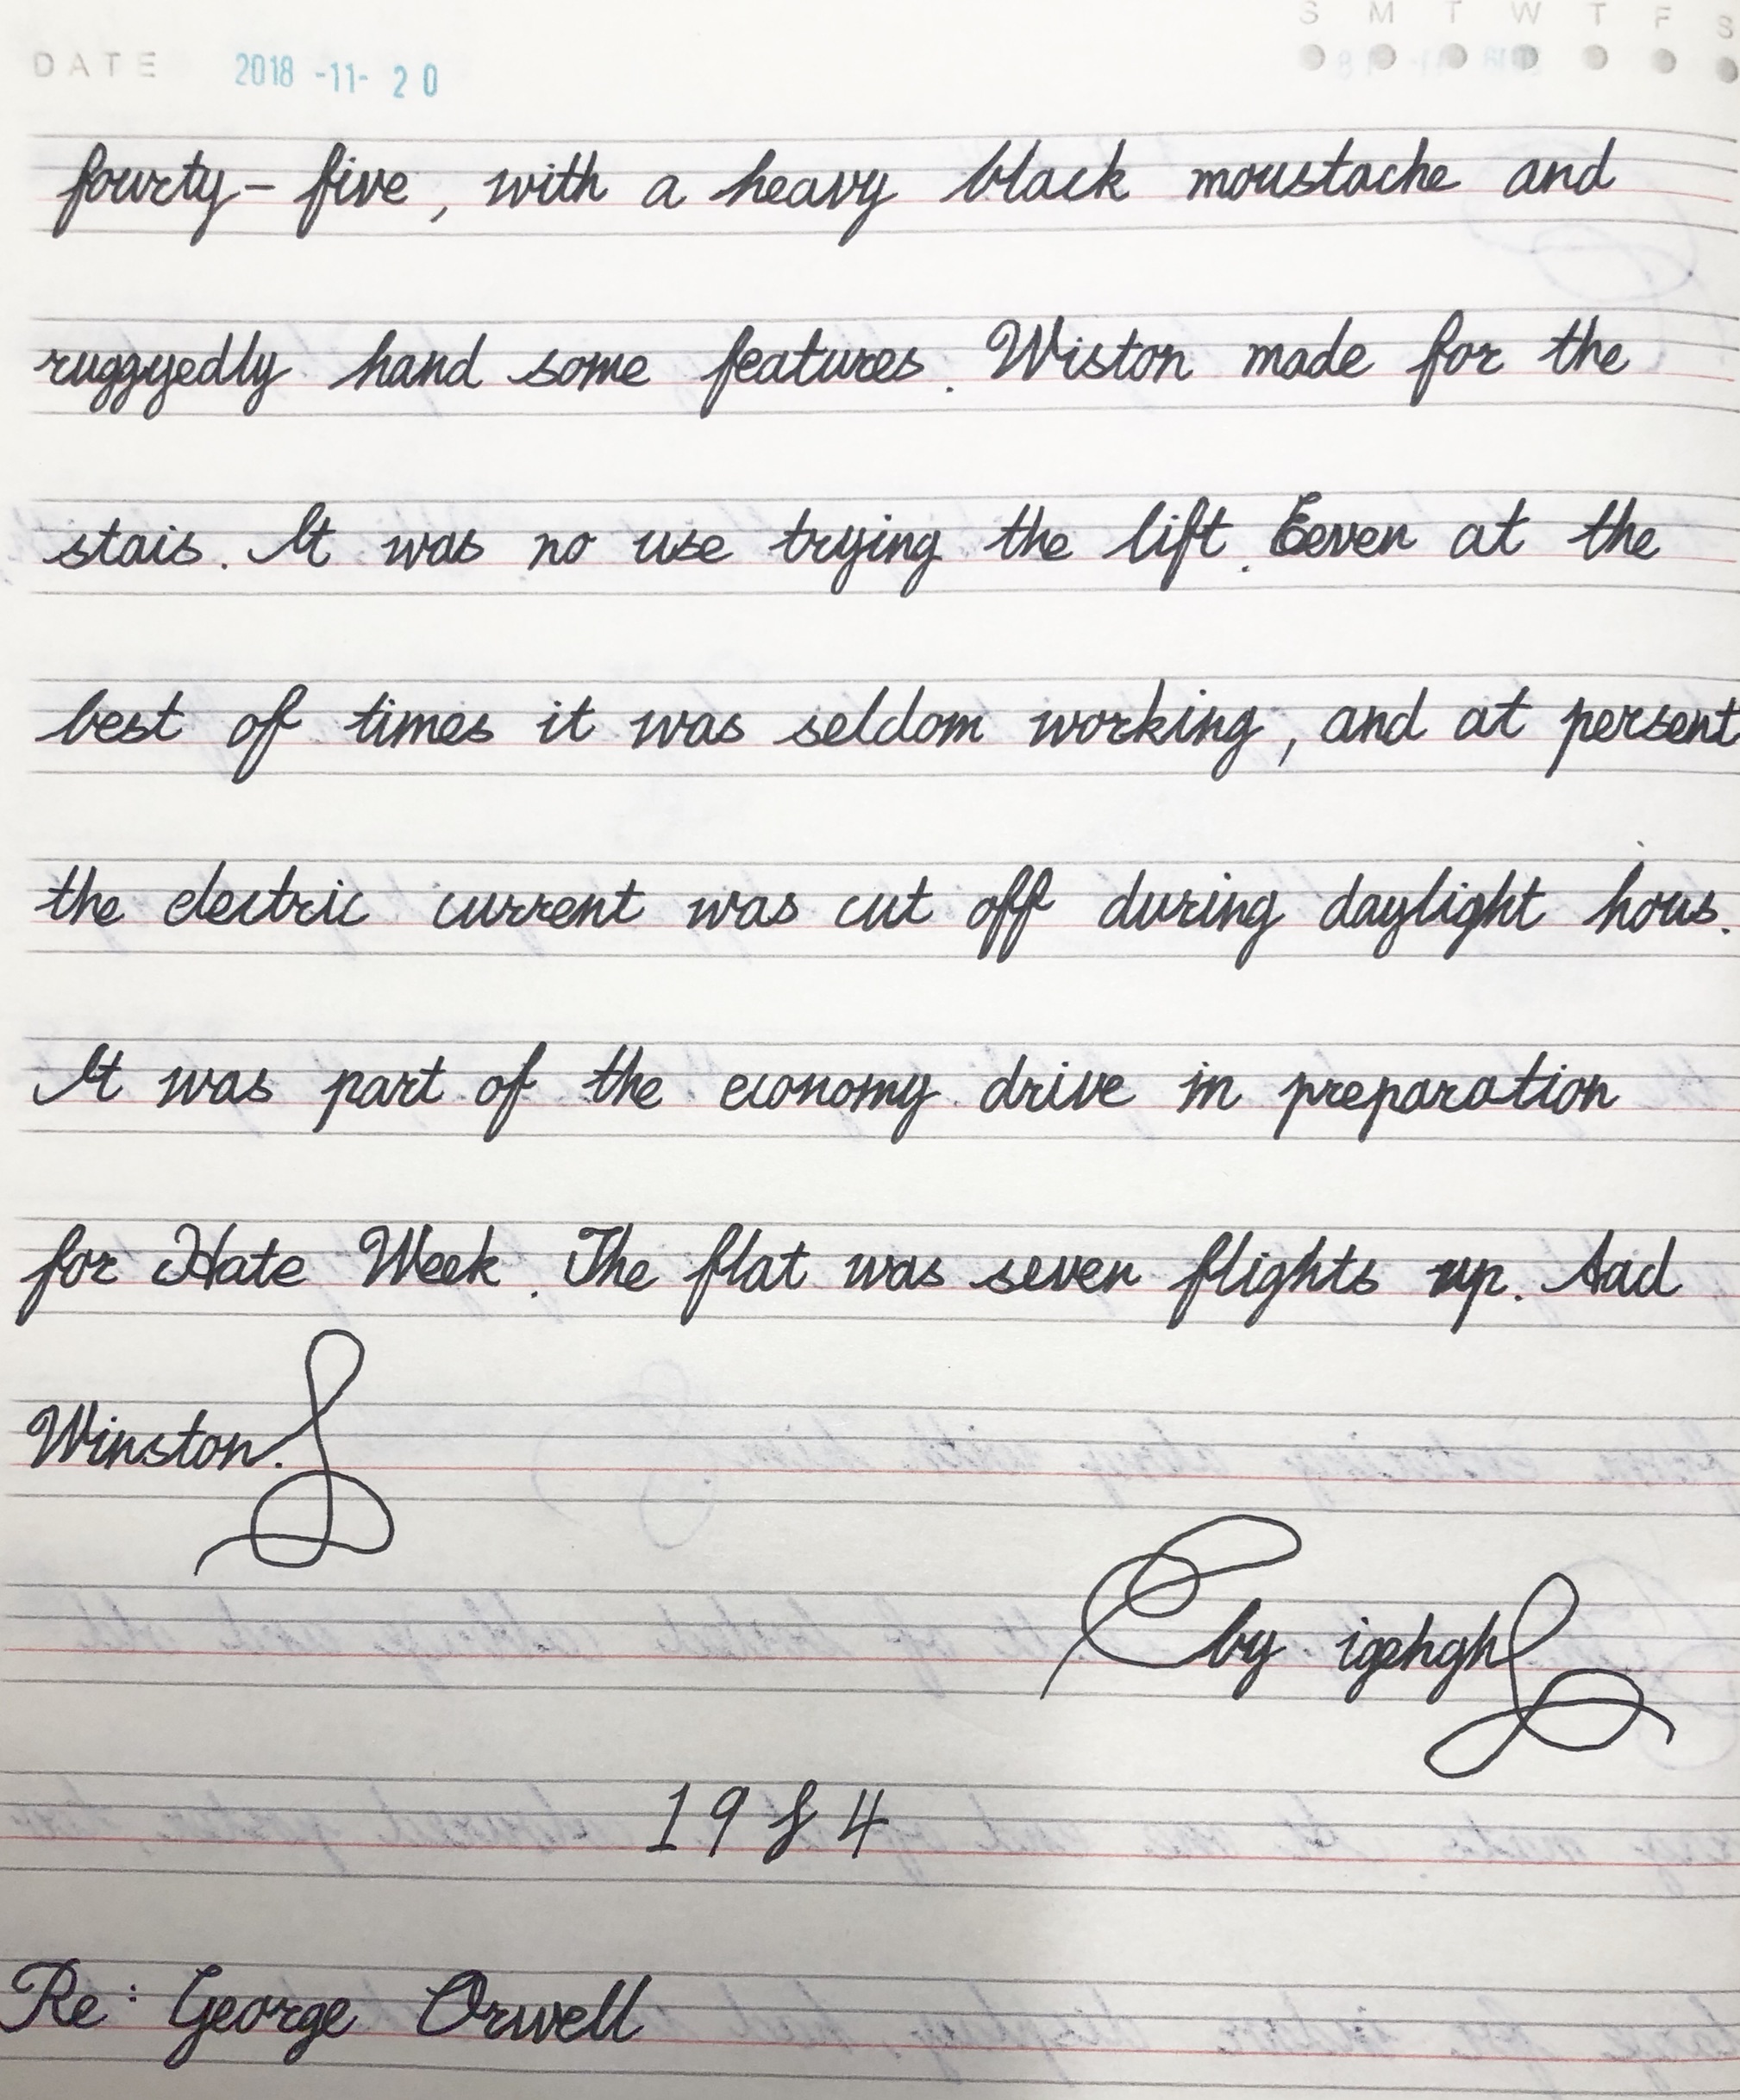 S M T W T F S
DATE 2018 -11- 20
fourty-five, with a heavy black moustache and
ruggyedly hand some features. Wiston made for the
stais. It was no use trying the lift. Eeven at the
best of times it was seldom working, and at persent
the electric current was cut off during daylight hous.
It was part of the economy drive in preparation
for Hate Week. The flat was seven flights up. Aad
Winston.
by igehgh
1984
Re: George Orwell